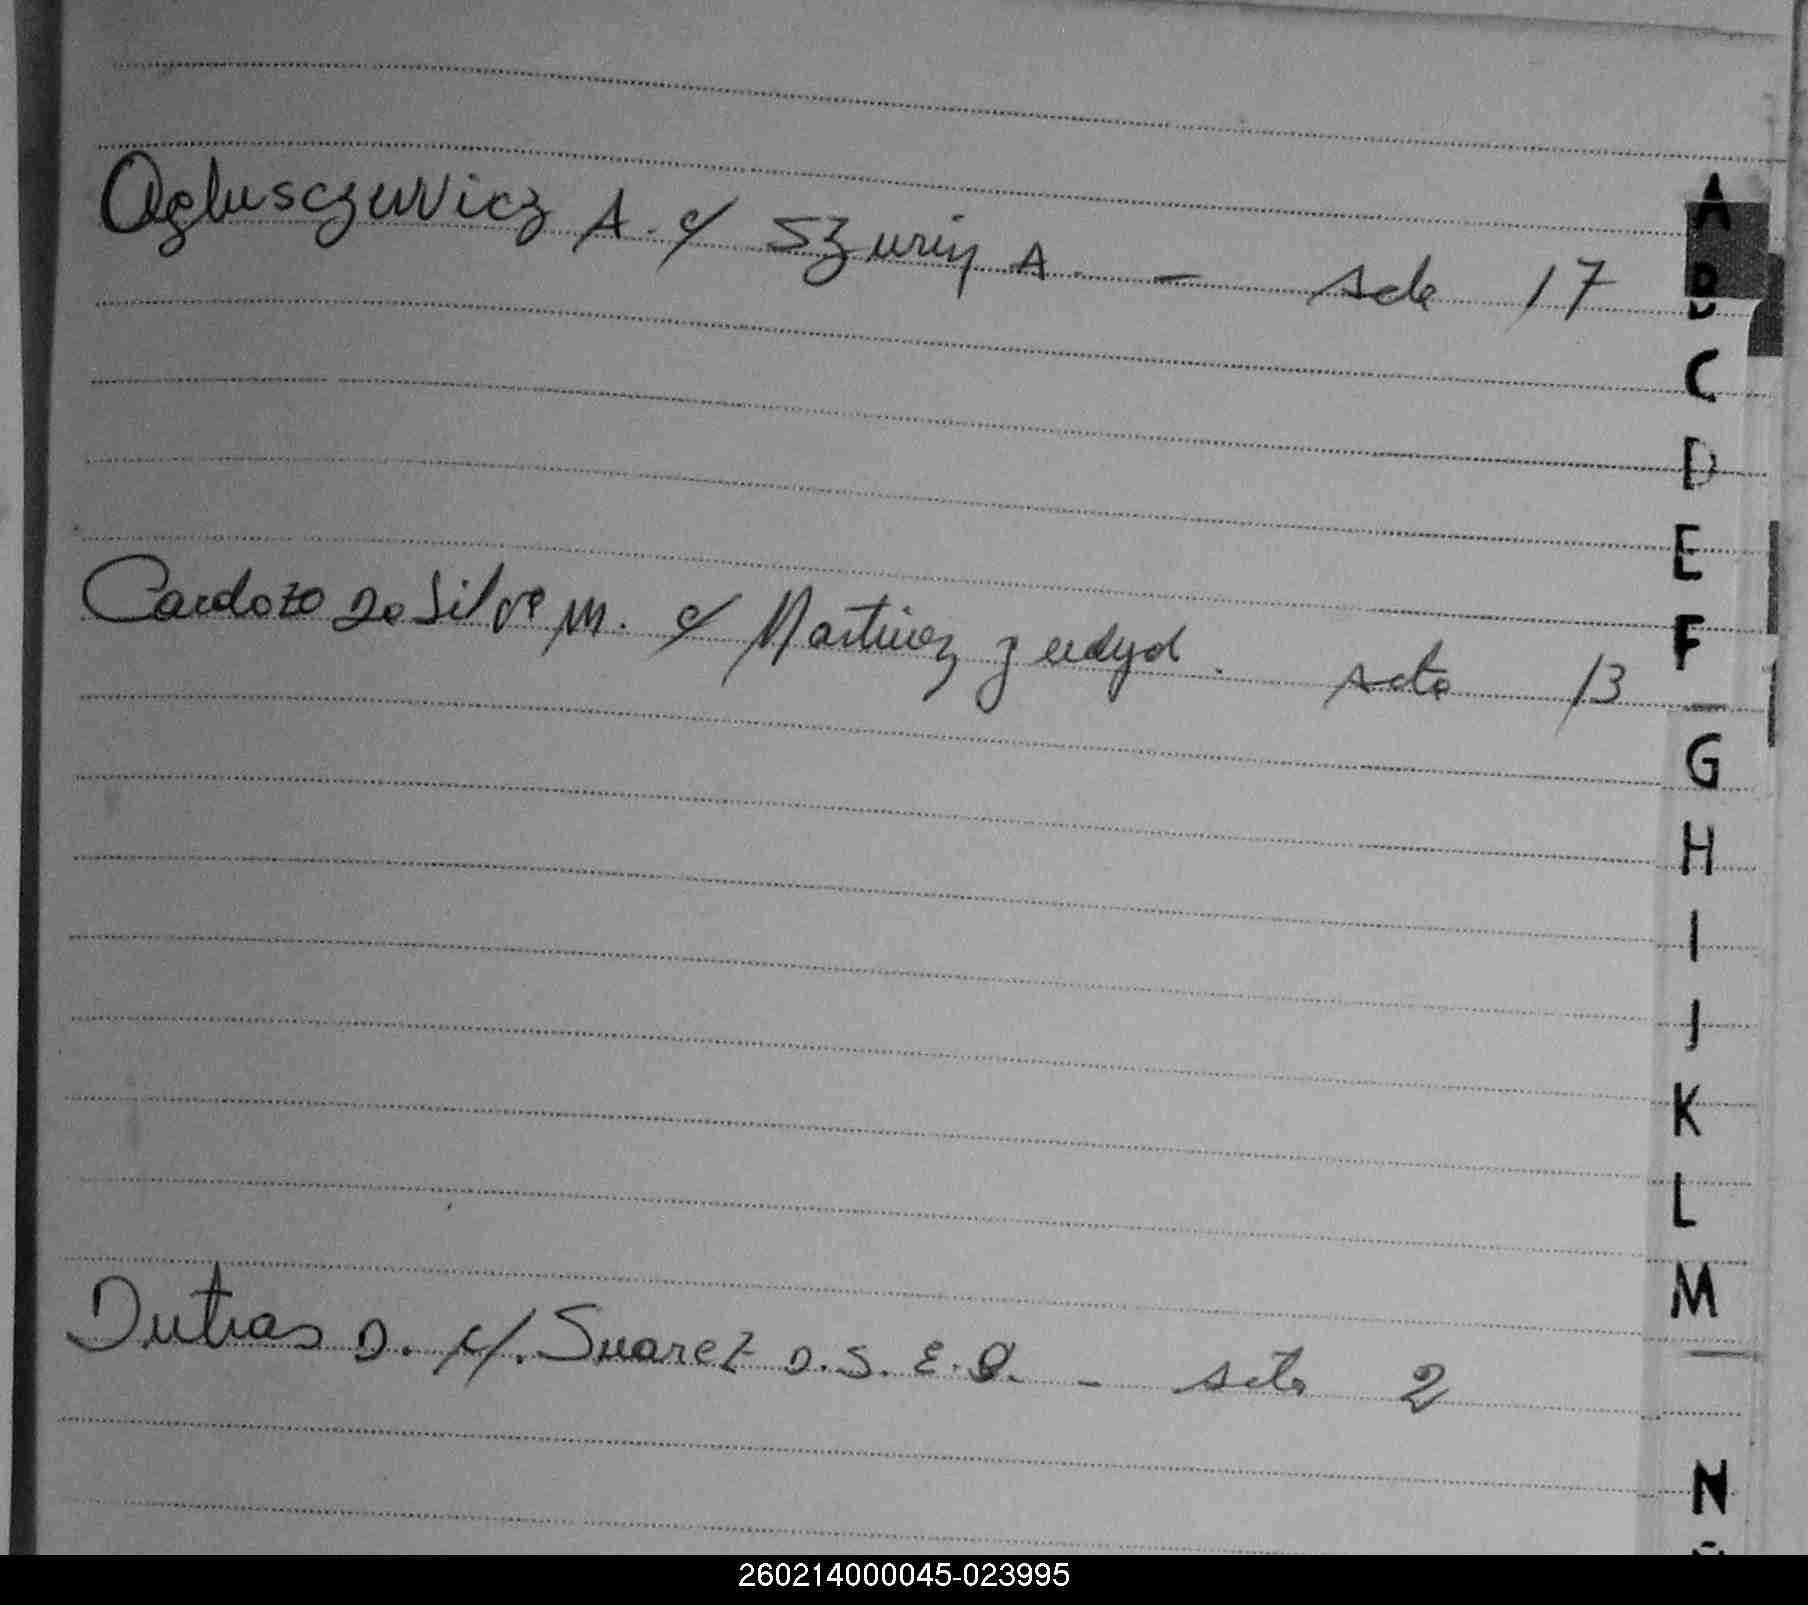 Ogluszewicz A. c/ Szuriy A. - acta 17
Cardozo Da Silva M. c/ Martinez Zudyd. acta 13
Dutras D. c/. Suarez D.S.E.B. - acta 2
A
B
C
D
E
F
G
H
I
J
K
L
M
N
260214000045-023995